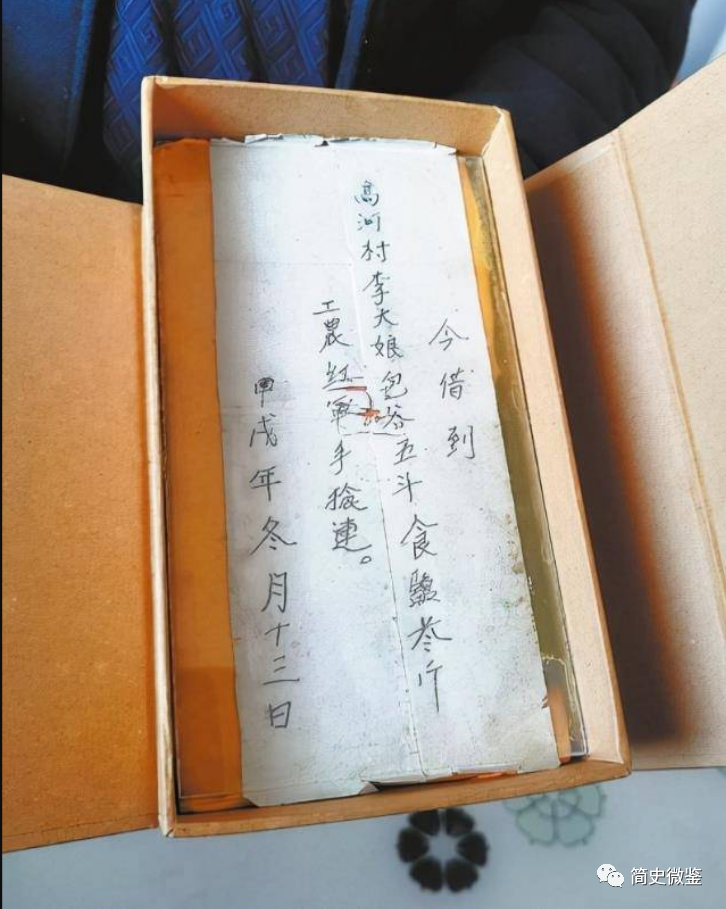 今借到
高河村李大娘包谷五斗食鹽叁斤
工農红軍手捡連。
甲戌年冬月十三日
简史微鉴